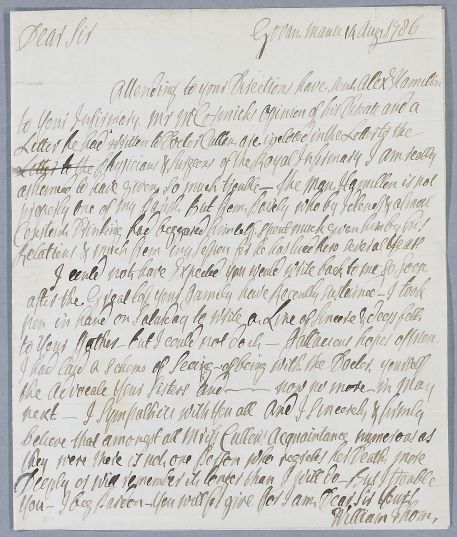 Dear Sir
Govan Manse 14 Augt 1786
Attending to your Directions have sent Alexr Hamilton
to your Infirmary Mr McCormicks opinion of his Disease and a
Letter he had written to Doctor Cullen are inclosed in the Letter to the
Letter to the Physicians & Surgeons of the Royal Infirmary I am really
ashamed to have given so much trouble – The Man Hamilton is not
properly one of my Parish But from Society who by Idleness & almost
Constant Drinking has beggared himself, spent much given him by his
Relations & much from my Session for he has lived here several years
I could not have Expected you would write back to me so soon
after the Great loss your Family have Recently Sustained – I took
pen in hand on Saturday to write a Line of sincere & deep felt
to your Father but I could not do it – Fallacious hopes of man
I had laid a scheme of Seeing – of being with the Doctor, yourself
the Advocate your Sisters and —— now no more – in May
next – I Sympathise with you all And I Sincerely & firmly
believe that amongst all Mrs Cullens Acquaintance numerous as
they were there is not one Person who regrets her Death more
Deeply or will remember it longer than I will do – But I trouble
You – I beg Pardon – You will forgive for I am Dear Sir Yours
William Thom,